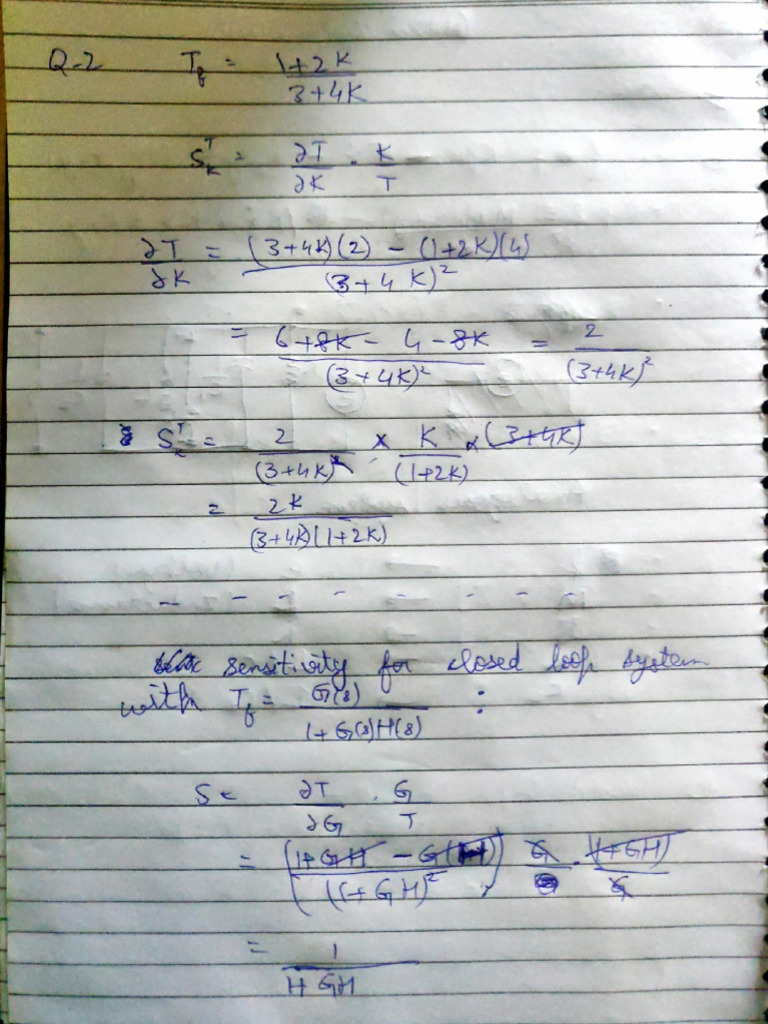 Q-2 T_f = (1+2K)/(3+4K)
S_K^T = ∂T/∂K . K/T
∂T/∂K = ((3+4K)(2) - (1+2K)(4))/(3+4K)^2
= (6+8K - 4 - 8K)/(3+4K)^2 = 2/(3+4K)^2
S_K^T = 2/(3+4K)^2 × K/(1+2K) × (3+4K)
= 2K/((3+4K)(1+2K))
- - - - - - - -
sensitivity for closed loop system
with T_f = G(s)/(1+G(s)H(s)) :
S = ∂T/∂G . G/T
= ((1+GH - G(H))/(1+GH)^2) G . (1+GH)/G
= 1/(1+GH)